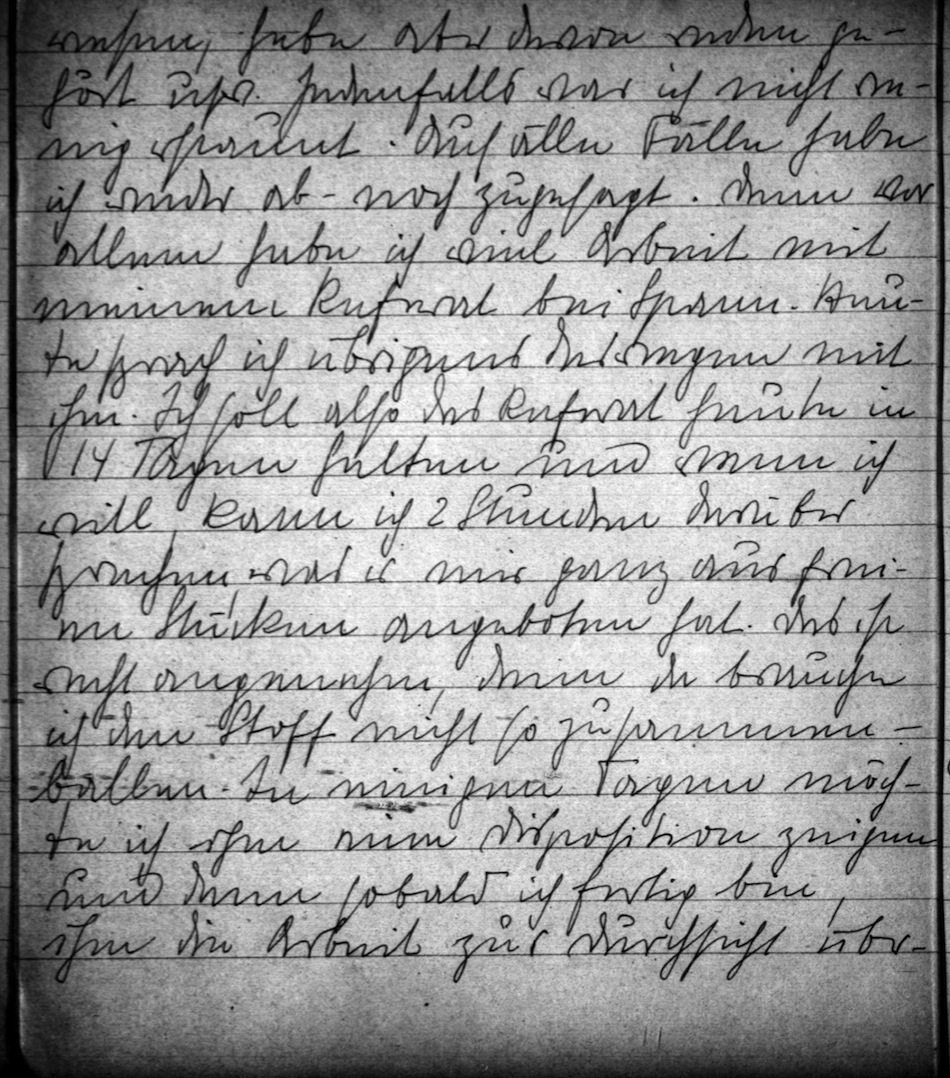 wesen, habe aber davon reden ge-
hört usw. Jedenfalls war ich nicht we-
nig erstaunt. Auf alle Fälle habe
ich weder ab- noch zugesagt. Denn vor
allem habe ich viel Arbeit mit
meinem Referat bei Spann. Heu-
te sprach ich übrigens deswegen mit
ihm. Ich soll also das Referat heute in
14 Tagen halten und wenn ich
will, kann ich 2 Stunden darüber
sprechen, was er mir ganz aus frei-
en Stücken angeboten hat. Das ist
recht angenehm, denn da brauche
ich den Stoff nicht so zusammen-
ballen. In einigen Tagen möch-
te ich ihm eine Disposition zeigen
und dann sobald ich fertig bin,
ihm die Arbeit zur Durchsicht über-